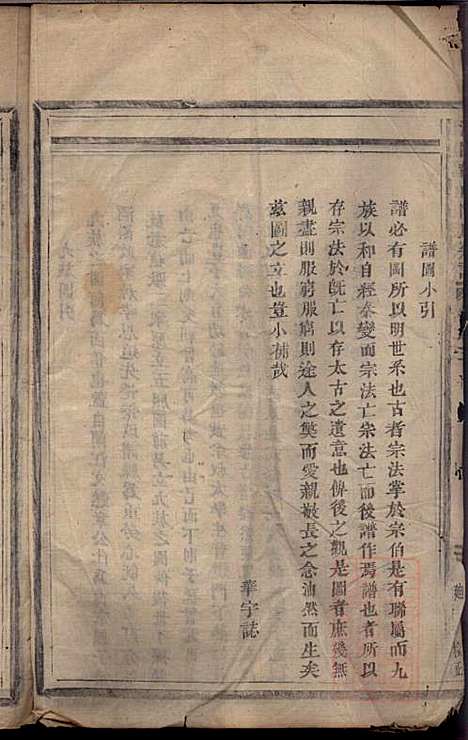 譜圖小引
譜必有圖所以明世系也古者宗法掌於宗伯是有聯屬而九
族以和自經秦變而宗法亡宗法亡而後譜作焉譜也者所以
存宗法於旣亡以存太古之遺意也俾後之觀是圖者庶幾無
親盡則服窮服窮則途人之獘而愛親敬長之念油然而生矣
玆圖之立也豈小補哉
華字誌